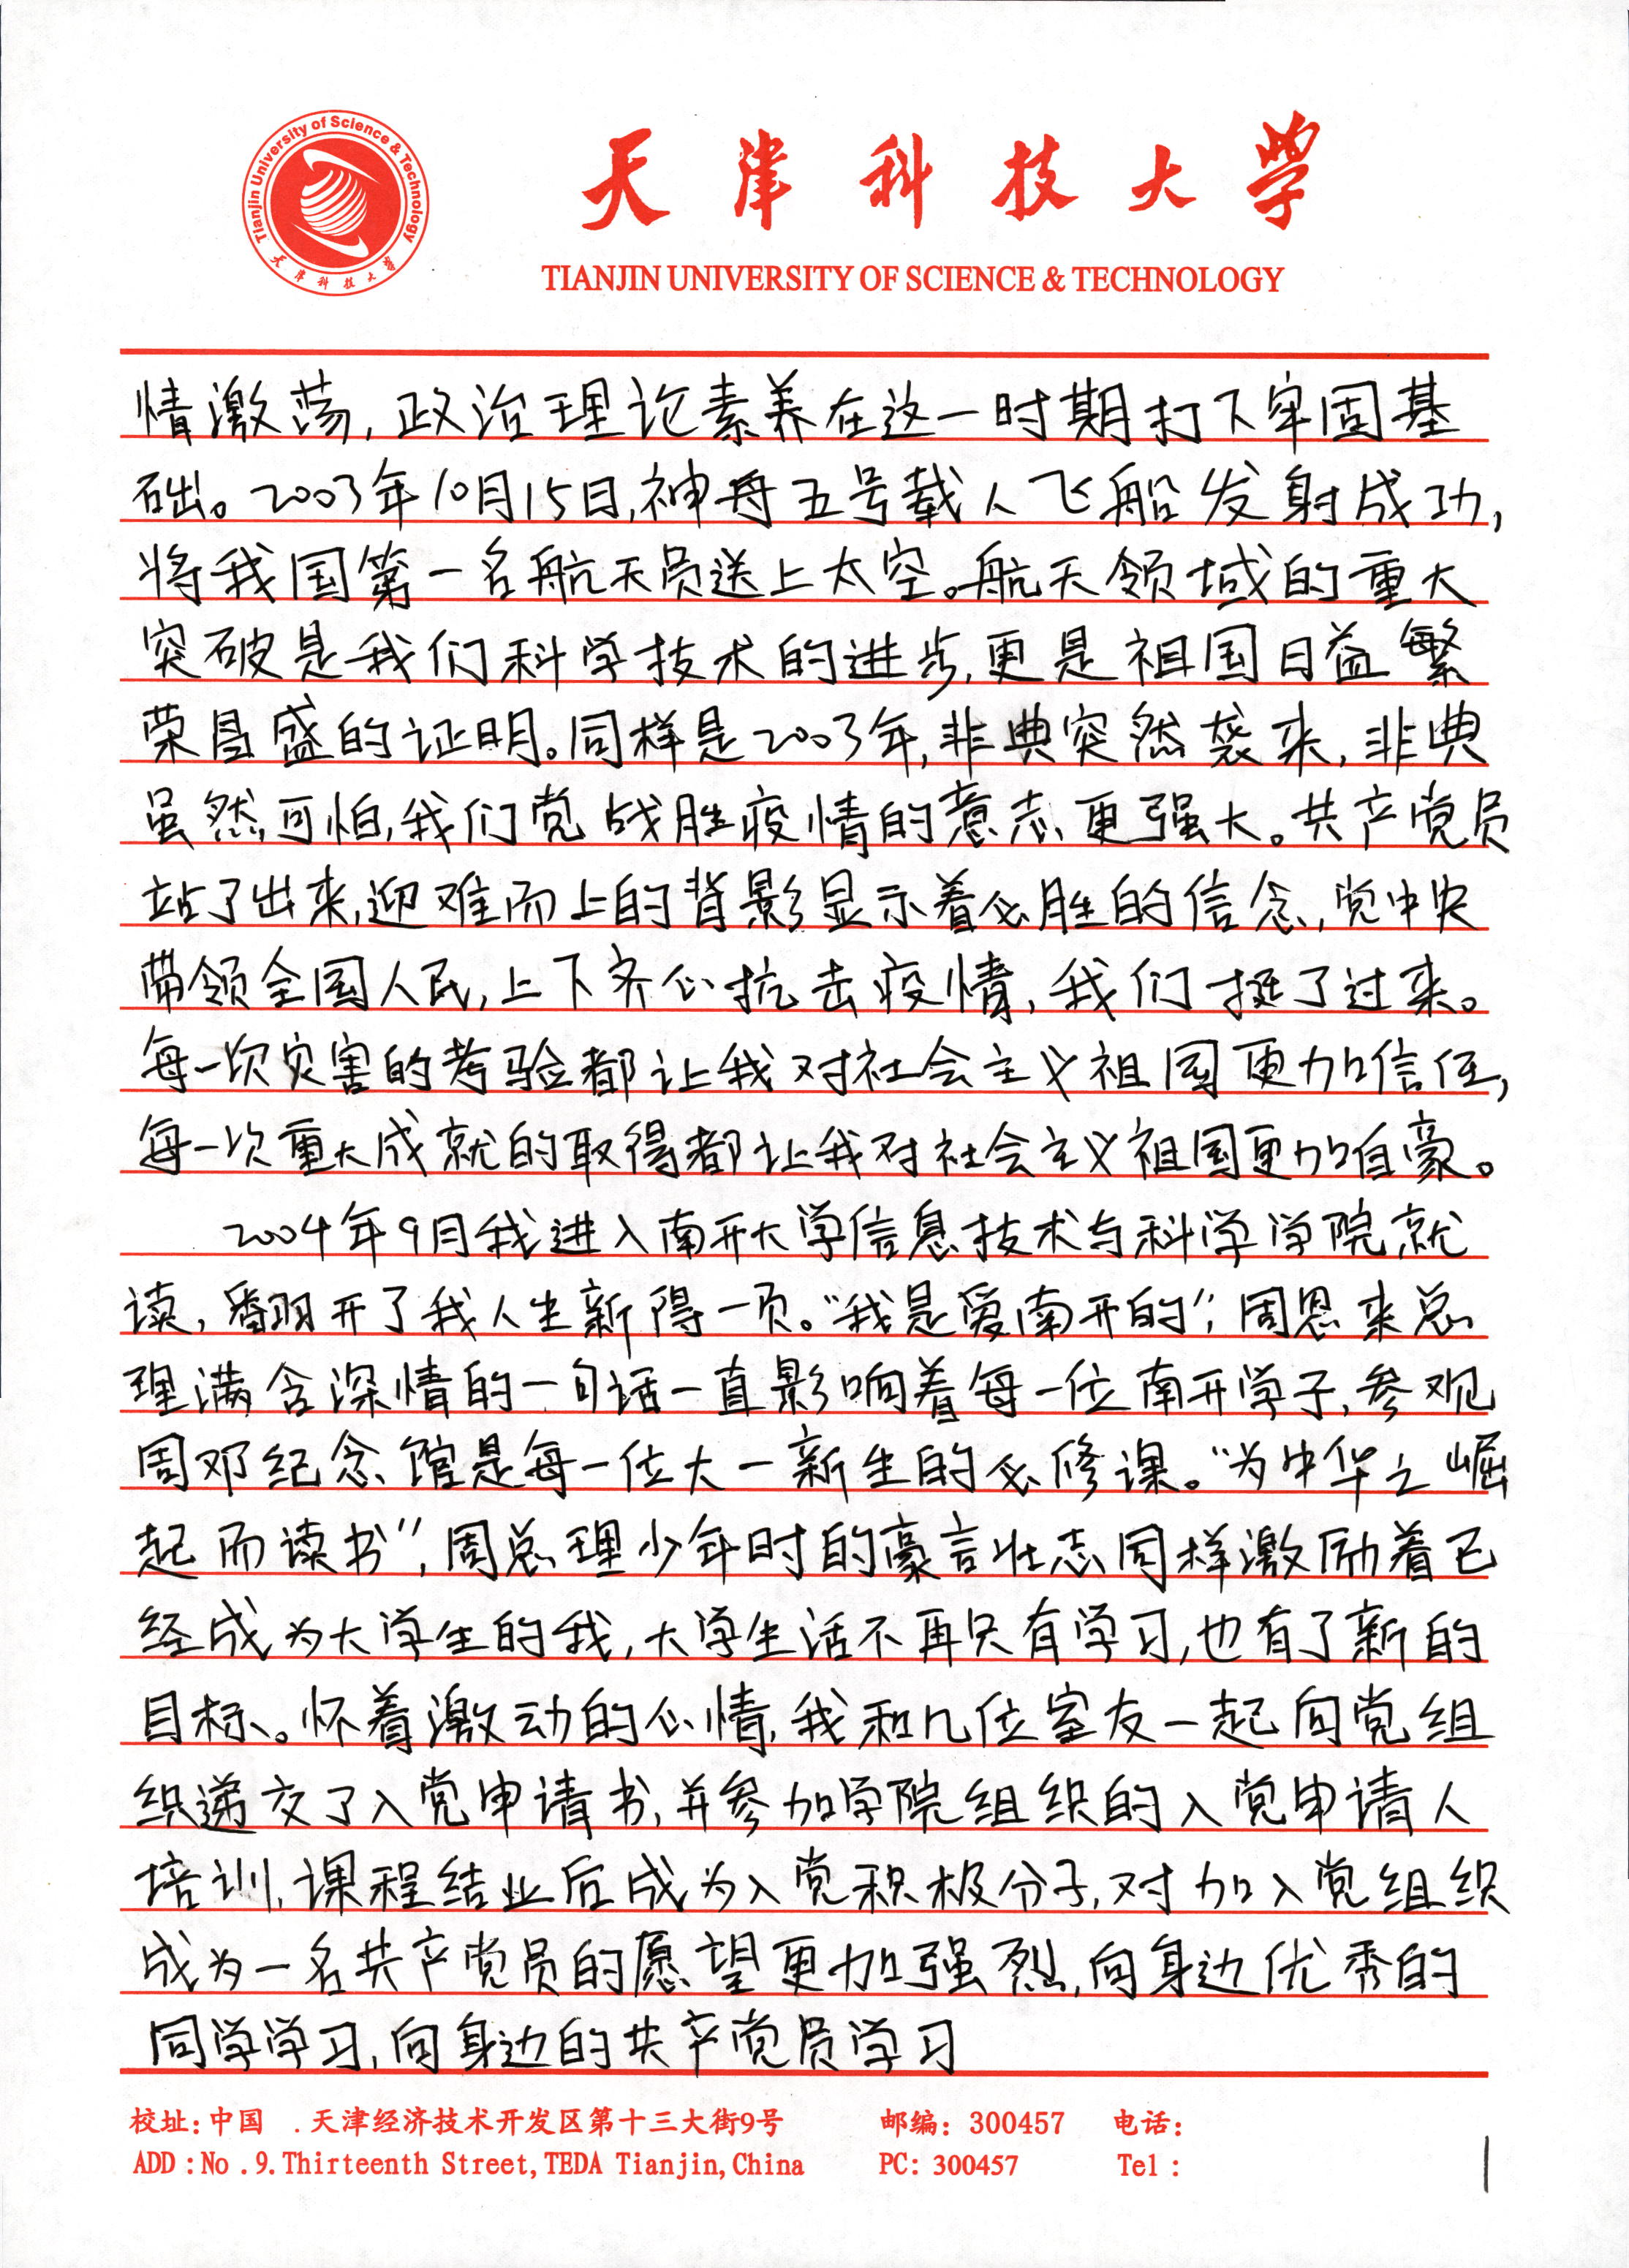 Tianjin University of Science & Technology
天津科技大学
天津科技大学
TIANJIN UNIVERSITY OF SCIENCE & TECHNOLOGY
情激荡,政治理论素养在这一时期打下牢固基
础。2003年10月15日,神舟五号载人飞船发射成功,
将我国第一名航天员送上太空。航天领域的重大
突破是我们科学技术的进步,更是祖国日益繁
荣昌盛的证明。同样是2003年,非典突然袭来,非典
虽然可怕,我们党战胜疫情的意志更强大。共产党员
站了出来,迎难而上的背影显示着必胜的信念,党中央
带领全国人民,上下齐心抗击疫情,我们挺了过来。
每一次灾害的考验都让我对社会主义祖国更加信任,
每一次重大成就的取得都让我对社会主义祖国更加自豪。
2004年9月我进入南开大学信息技术与科学学院就
读,翻开了我人生新得一页。“我是爱南开的”,周恩来总
理满含深情的一句话一直影响着每一位南开学子,参观
周邓纪念馆是每一位大一新生的必修课。“为中华之崛
起而读书”,周总理少年时的豪言壮志同样激励着已
经成为大学生的我,大学生活不再只有学习,也有了新的
目标。怀着激动的心情,我和几位室友一起向党组
织递交了入党申请书,并参加学院组织的入党申请人
培训,课程结业后成为入党积极分子,对加入党组织
成为一名共产党员的愿望更加强烈,向身边优秀的
同学学习,向身边的共产党员学习
校址:中国 .天津经济技术开发区第十三大街9号 邮编:300457 电话:
ADD :No .9.Thirteenth Street,TEDA Tianjin,China PC: 300457 Tel :
1